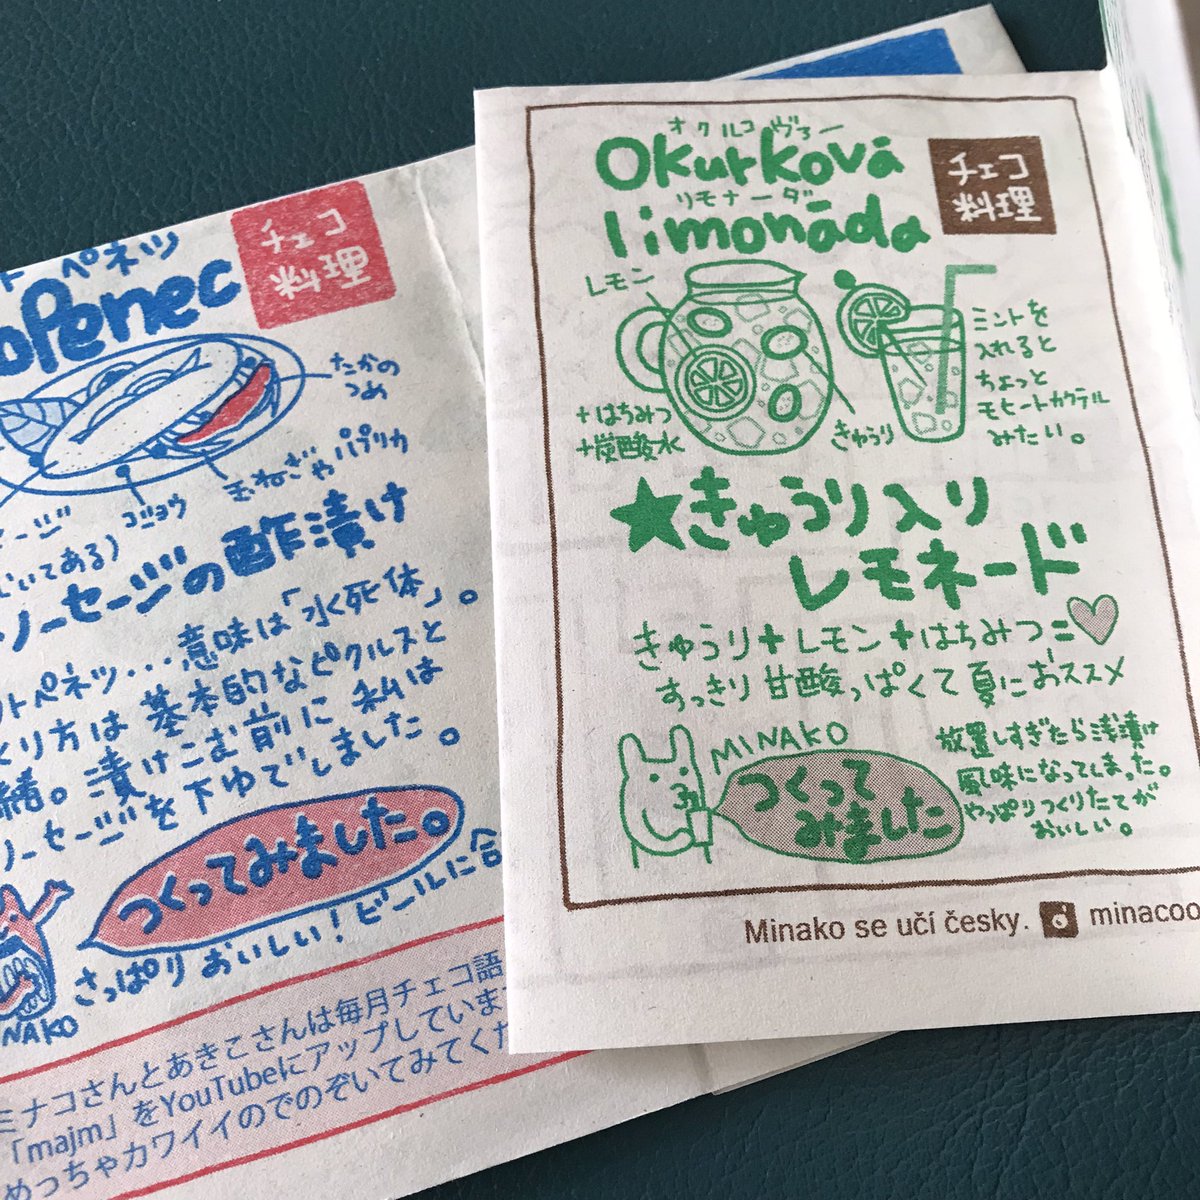 ト ペネツ
openec
チェコ
料理
たかの
つめ
玉ねぎやパプリカ
コショウ
ーセージ
いてある）
ソーセージの酢漬け
トペネツ…意味は「水死体」。
くり方は基本的なピクルスと
緒。漬けこむ前に私は
ソーセージを下ゆでしました。
つくってみました。
さっぱりおいしい！ビールに合
NAKO
ミナコさんとあきこさんは毎月チェコ語
「majm」をYouTubeにアップしています
めっちゃカワイイのでのぞいてみてくだ
オクルコヴァー
Okurková
リモナーダ
limonáda
チェコ
料理
レモン
+はちみつ
+炭酸水
きゅうり
ミントを
入れると
ちょっと
モヒートカクテル
みたい。
★きゅうり入り
レモネード
きゅうり+レモン+はちみつ=♡
すっきり甘酸っぱくて夏におススメ
MINAKO
つくって
みました
放置しすぎたら浅漬け
風味になってしまった。
やっぱりつくりたてが
おいしい。
Minako se učí česky. minacoo